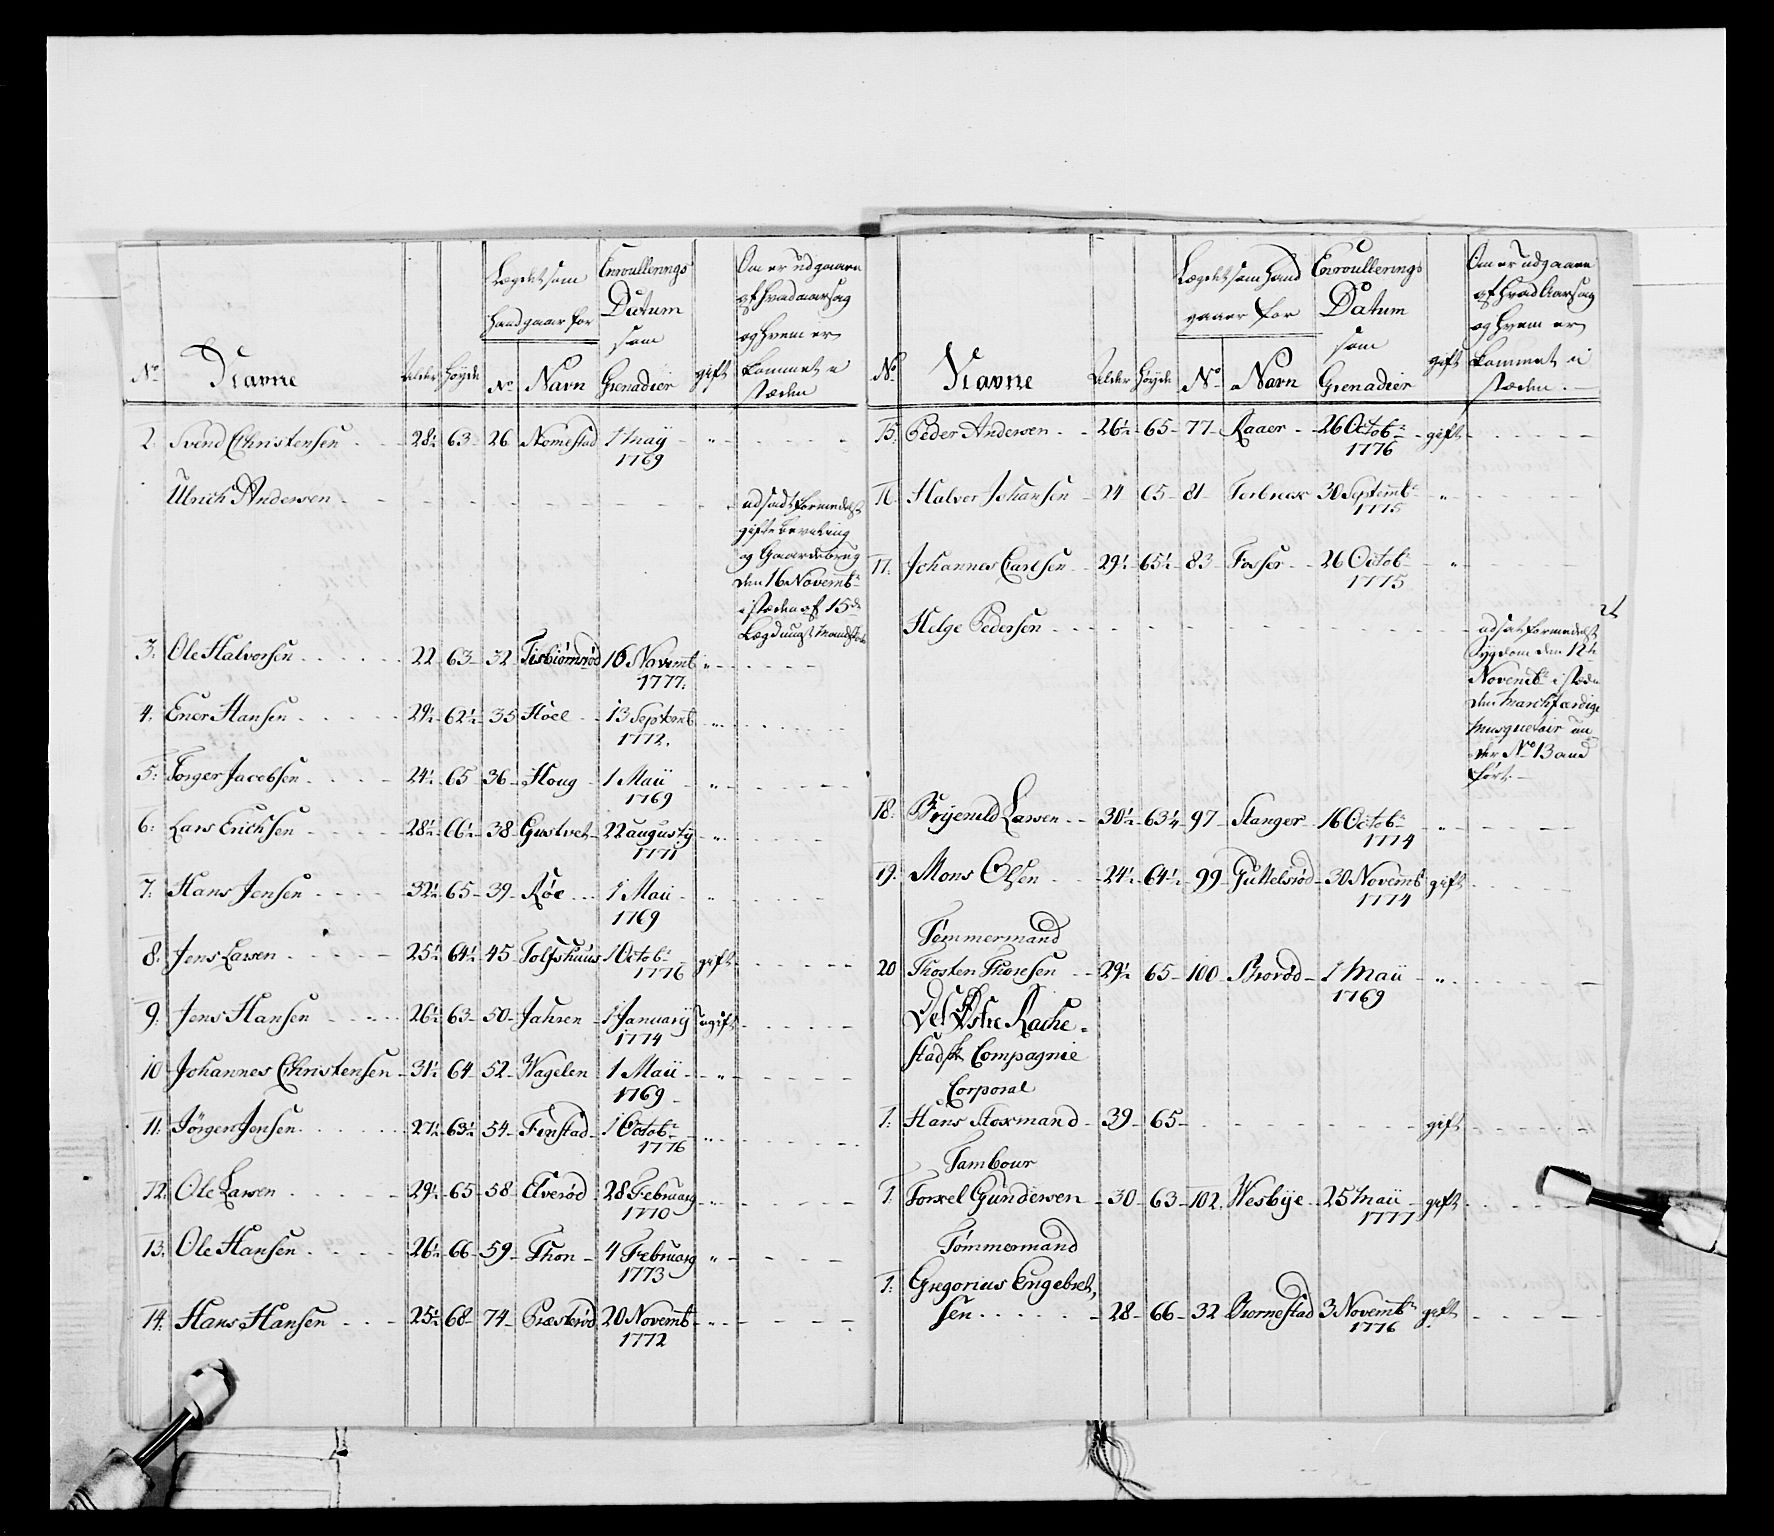 No Navne Alder Høyde Lægdet som hand gaar for No Navn Enroullerings Datum som Grenadier gift Om er udgaaen af hvad aarsag og hvem er kommet i stæden
2. Svend Christensen 28½ 63 26 Nomestad 1 May
1769
Ulrich Andersen udsadt formedelst
gifte
og Gaardebrug
den 16 Novembr
i stæden af 15de
3. Ole Halvorsen 22 63 32 Tisbiörnröd 16 Novemb
1777.
4. Ener Hansen 29½ 62½ 35 Höel 13 Septemb
1772.
5. Torger Jacobsen 24½ 65 36 Houg 1 Maii
1769
6. Lars Erichsen 28½ 66½ 38 Gustvet 22 augusty
1771
7. Hans Jensen 32½ 65 39 Röe 1 Maii
1769
8. Jens Larsen 25½ 64½ 45 Tolfshuus 1 Octobr gift
1776
9. Jens Hansen 26½ 63 50 Jahren 1 January ugift
1774
10 Johannes Christensen 31½ 64 52 Wagelen 1 Maii
1769
11. Jörgen Jensen 27½ 63½ 54 Finstad 1 Octobr
1776
12. Ole Larsen 29½ 65 58 Elveröd 28 Februarg
1770
13. Ole Hansen 26½ 66 59 Thon 4 Februarg
1773
14. Hans Hansen 25½ 68 74 Præsteröd 20 Novemb
1772
No Navne Alder Høyde Lægdet som hand gaaer for No Navn Enroullerings Datum som Grenadier gift Om er udgaaen af hvad Aarsag og hvem er kommet i stæden
15. Peder Andersen 26½ 65 77 Raaer 26 Octobr gift
1776
16. Halvor Johansen 24 65 81 30 Septembr
1775
17. Johannes Carlsen 29½ 65½ 83 Fosser 26 Octobr
1775
Helge Pedersen udsat formedelst
Sygdom den 12te
Novembr i stæden
den Marchfærdige
Musqueteir un-
der No 13 and
fört
18. Larsen 30½ 63¼ 97 Stanger 16 Octobr
1774
19. Mons Olsen 24½ 64½ 99 Guttelsröd 30 Novemb gift
1774
Tömmermand
20 Thosten Thoresen 29½ 65 100 Broröd 1 Maii
1769
Det Östre Rache-
stadske Compagnie
Corporal
1. Hans Stormand 39 65 gift
Tambour
1. Torkel Gundersen 30 63 102 Wesbye 25 Maii gift
1777
Tömmermand
1. Gregorius Engebret-
sen 28 66 32 Biornestad 3 Novembr gift
1776